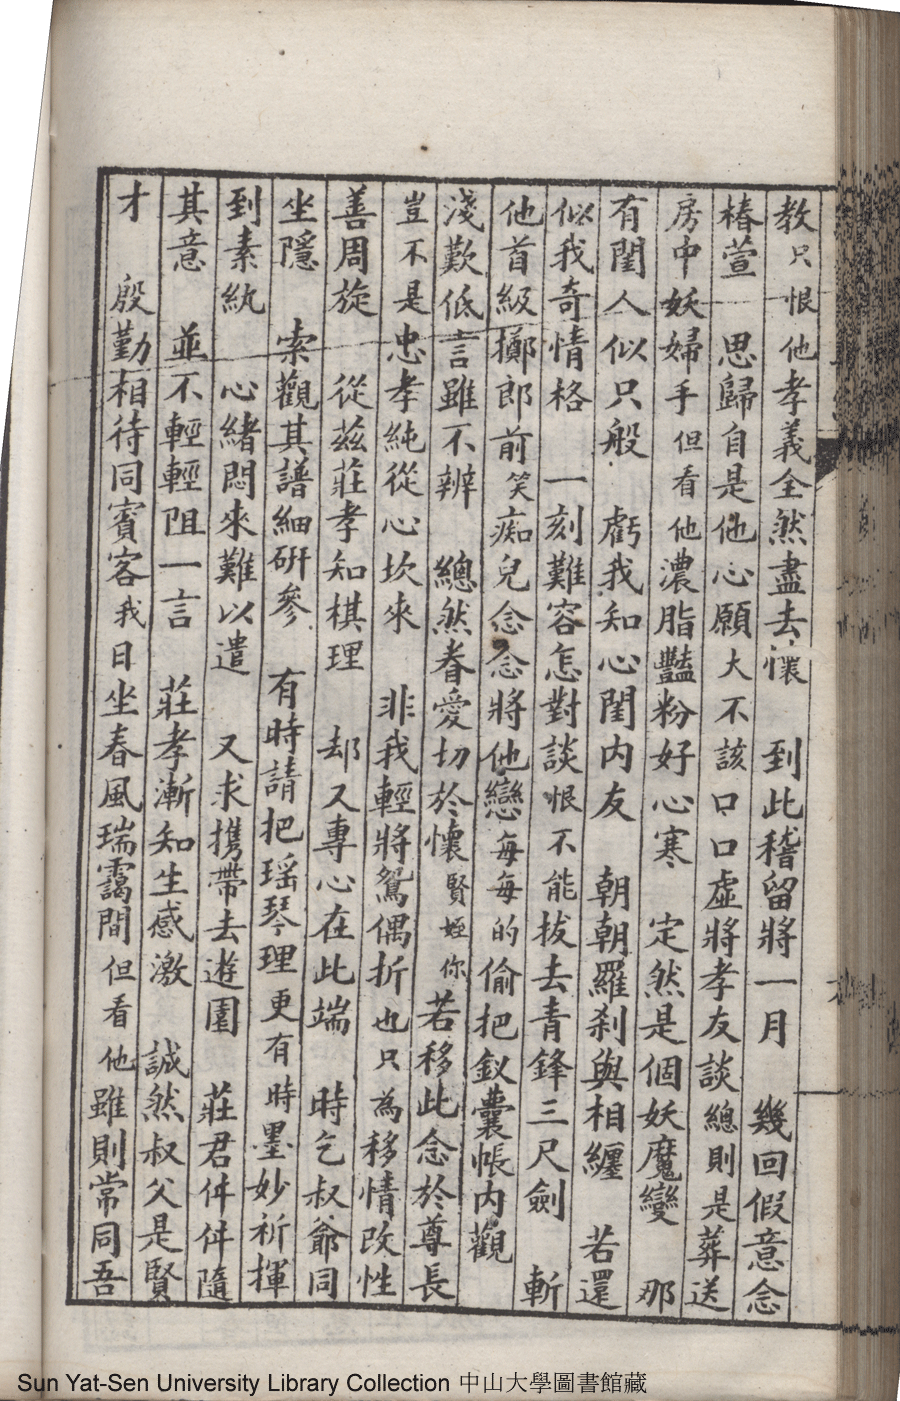 教只恨他孝義全然盡去懷　到此稽留將一月　幾回假意念
椿萱　思歸自是他心願大不該口口虛將孝友談總則是葬送
房中妖婦手但看他濃脂豔粉好心寒　定然是個妖魔變　那
有閨人似只般　虧我知心閨内友　朝朝羅刹與相纏　若還
似我奇情格　一刻難容怎對談恨不能拔去青鋒三尺劍　斬
他首級擲郎前笑痴兒念念將他戀每每的偷把釵囊帳内觀
淺歎低言雖不辨　總然眷愛切於懷賢姪你若移此念於尊長
豈不是忠孝純從心坎來　非我輕將鴛偶折也只為移情改性
善周旋　從茲莊孝知棋理　却又專心在此端　時乞叔爺同
坐隱　索觀其譜細研參　有時請把瑶琴理更有時墨妙祈揮
到素紈　心緒悶來難以遣　又求携帶去遊園　莊君件件隨
其意　並不輕輕阻一言　莊孝漸知生感激　誠然叔父是賢
才　殷勤相待同賓客我日坐春風瑞靄間但看他雖則常同吾
Sun Yat-Sen University Library Collection 中山大學圖書館藏